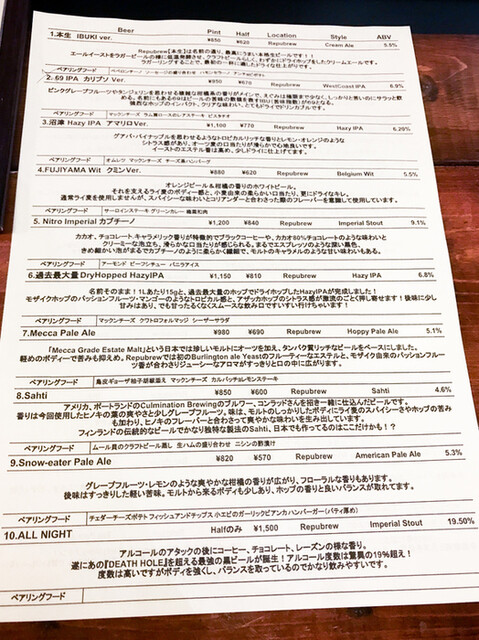 Beer Pint Half Location Style ABV
1.本生 IBUKI ver. ¥850 ¥620 Repubrew Cream Ale 5.5%
Repubrew【本生】は名前の通り、最高にうまい本格生ビールです!!
エールイーストをラガービールの様に低温発酵させ、クラフトビールらしく、わずかにドライホップをしたクリームエールです。
ラガーリングすることで、最初の一杯に適したドライな仕上がりです。
ペアリングフード
2. 69 IPA カリプソ Ver. ¥950 ¥670 Repubrew WestCoast IPA 6.9%
ピンクグレープフルーツやタンジェリンを思わせる複雑な柑橘系の香りがメインで、えぐみは極限まで少なく、しっかりと苦いのにサラッと飲
める。名前にもある69はビールの苦味の数値を表すIBU(苦味指数)が69となる。
個性的なホップのインパクト、クリアな味わい、とてもドライでドリンカブルです。
ペアリングフード マックンチーズ ラム肩ロースのレアステーキ ピスタチオ
3.沼津 Hazy IPA アマリロVer. ¥1,100 ¥770 Repubrew Hazy IPA 6.20%
グアバ・パイナップルを思わせるようなトロピカルリッチな香りとレモン・オレンジのような
シトラス感があり、オーツ麦の口当たりが滑らかで心地良いです。
イーストのエステル香は高め、少しドライに仕上げてます。
ペアリングフード オムレツ マックンチーズ チーズ系ハンバーグ
4.FUJIYAMA Wit クミンVer. ¥880 ¥620 Repubrew Belgium Wit 5.5%
オレンジピール&柑橘の香りのホワイトビール。
それを支えるライ麦のボディー感と、小麦由来の柔らかい口当たり、更にドライなキレ。
通常ライ麦を使用しませんが、スパイシーな味わいとコリアンダーと合わさった際のフレーバーを意識して使用しています。
ペアリングフード サーロインステーキ グリーンカレー 麻婆豆腐
5. Nitro Imperial カプチーノ ¥1,200 ¥840 Repubrew Imperial Stout 9.1%
カカオ、チョコレート、キャラメリック香りが特徴的でブラックコーヒーや、カカオ80%チョコレートのような味わいと
クリーミーな泡立ち、滑らかな口当たりが感じられる。まるでエスプレッソのような深い黒色、
きめ細かい泡がまるでカプチーノのように柔らかく繊細で、モルトのキャラメルのような甘い味わいもある。
ペアリングフード アーモンド ビーフシチュー バニラアイス
6.過去最大量DryHopped HazyIPA ¥1,150 ¥810 Repubrew Hazy IPA 6.8%
名前そのまま!1Lあたり15gと、過去最大量のホップでドライホップしたHazyIPAが完成しました!
モザイクホップのパッションフルーツ・マンゴーのようなトロピカル感と、アザッカホップのシトラス感が激流のごとく押し寄せます!後味に少し
甘みはあり、でも甘ったるくなくスムースな飲み口ですいすい行けちゃいます!
ペアリングフード マックンチーズ クワトロフォルマッジ シーザーサラダ
7.Mecca Pale Ale ¥980 ¥690 Repubrew Hoppy Pale Ale 5.1%
「Mecca Grade Estate Malt」という日本では珍しいモルトにオーツを加え、タンパク質リッチなビールをベースにしました。
軽めのボディーで苦みも抑えめ。Repubrewでは初のBurlington ale Yeastのフルーティーなエステルと、モザイク由来のパッションフルー
ツ香が合わさりジューシーなアロマがすっきりと口の中に広がります。
ペアリングフード 鳥皮ギョーザ 柚子胡椒添え マックンチーズ カルパッチョレモンステーキ
8.Sahti ¥850 ¥600 Repubrew Sahti 4.6%
アメリカ、ポートランドのCulmination Brewingのブルワー、コンラッドさんを招き一緒に仕込んだビールです。
香りは今回使用したヒノキの葉の爽やさと少しグレープフルーツ。味は、モルトのしっかりしたボディにライ麦のスパイシーさやホップの苦み
も加わり、ヒノキのフレーバーと合わさって爽やかな味わいを生み出しています。
フィンランドの伝統的なビールでかなり独特な製法のSahti、日本でも作ってるのはここだけかも!?
ペアリングフード ムール貝のクラフトビール蒸し 生ハムの盛り合わせ ニシンの酢漬け
9.Snow-eater Pale Ale ¥820 ¥570 Repubrew American Pale Ale 5.3%
グレープフルーツ・レモンのような爽やかな柑橘の香りが広がり、フローラルな香りもあります。
後味はすっきりした軽い苦味。モルトから来るボディも少しあり、ホップの香りと良いバランスが取れてます。
ペアリングフード チェダーチーズポテト フィッシュアンドチップス 小エビのガーリックビアンカ ハンバーガー(パティ厚め)
10.ALL NIGHT Halfのみ ¥1,500 Repubrew Imperial Stout 19.50%
アルコールのアタックの後にコーヒー、チョコレート、レーズンの様な香り。
遂にあの『DEATH HOLE』を超える最強の黒ビールが誕生!アルコール度数は驚異の19%超え!
度数は高いですがボディを強くし、バランスを取っているのでかなり飲みやすいです。
ペアリングフード